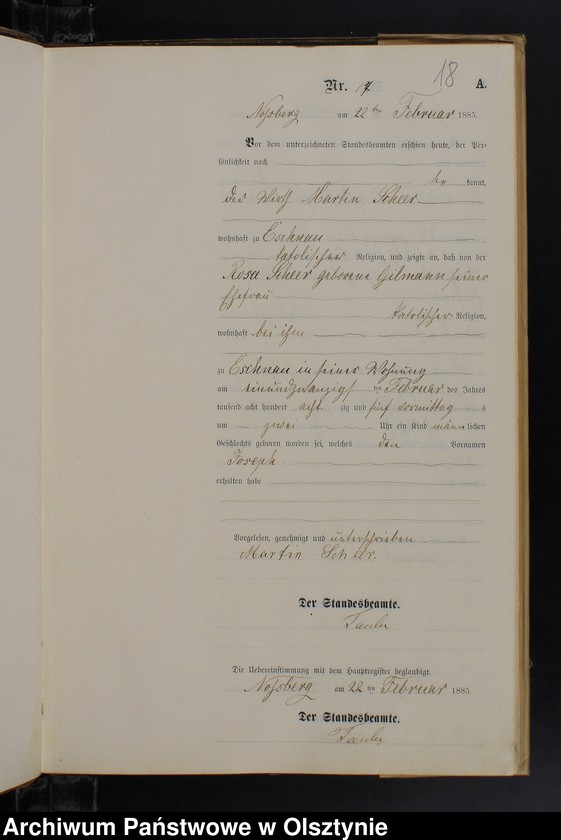 18
Nr. 17 A.
Nossberg am 22ten Februar 1885.
Vor dem unterzeichneten Standesbeamten erschien heute, der Per-
sönlichkeit nach
be kannt,
der Wirth Martin Scheer
wohnhaft zu Eschnau
katolischer Religion, und zeigte an, daß von der
Rosa Scheer geborene Gilmann seiner
Ehefrau
katolischer Religion,
wohnhaft bei ihm
zu Eschnau in seiner Wohnung
am einundzwanzigsten Februar des Jahres
tausend acht hundert acht zig und fünf vormittag s
um zwei Uhr ein Kind männ lichen
Geschlechts geboren worden sei, welches den Vornamen
Joseph
erhalten habe
Vorgelesen, genehmigt und unterschrieben
Martin Scheer.
Der Standesbeamte.
Die Uebereinstimmung mit dem Hauptregister beglaubigt.
Nossberg am 22 ten Februar 1885.
Der Standesbeamte.
Archiwum Państwowe w Olsztynie